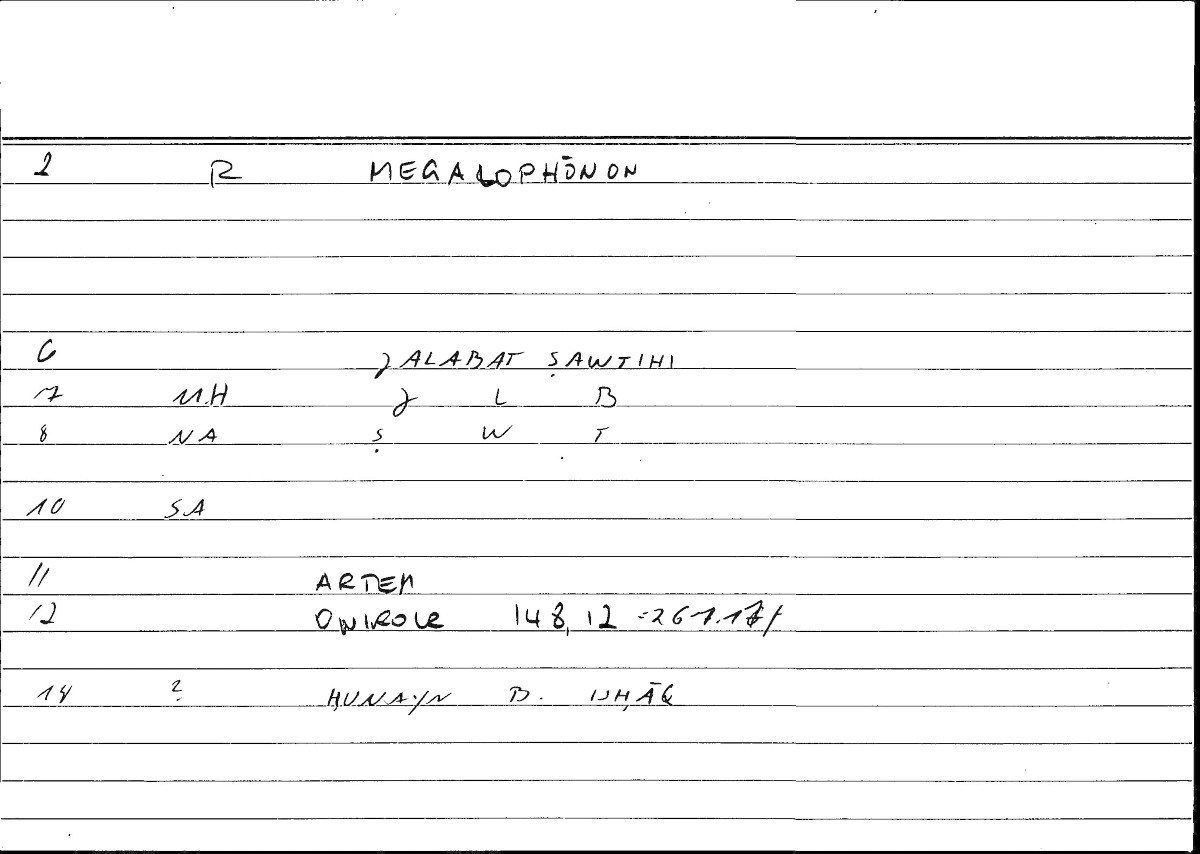 2 R MEGALOPHŌNON
6 JALABAT ṢAWTIHI
7 MH J L B
8 NA Ṣ W T
10 SA
11 ARTEM
12 ONIROCR 148, 12 =267.17/
14 ? ḤUNAYN B. ISḤĀQ